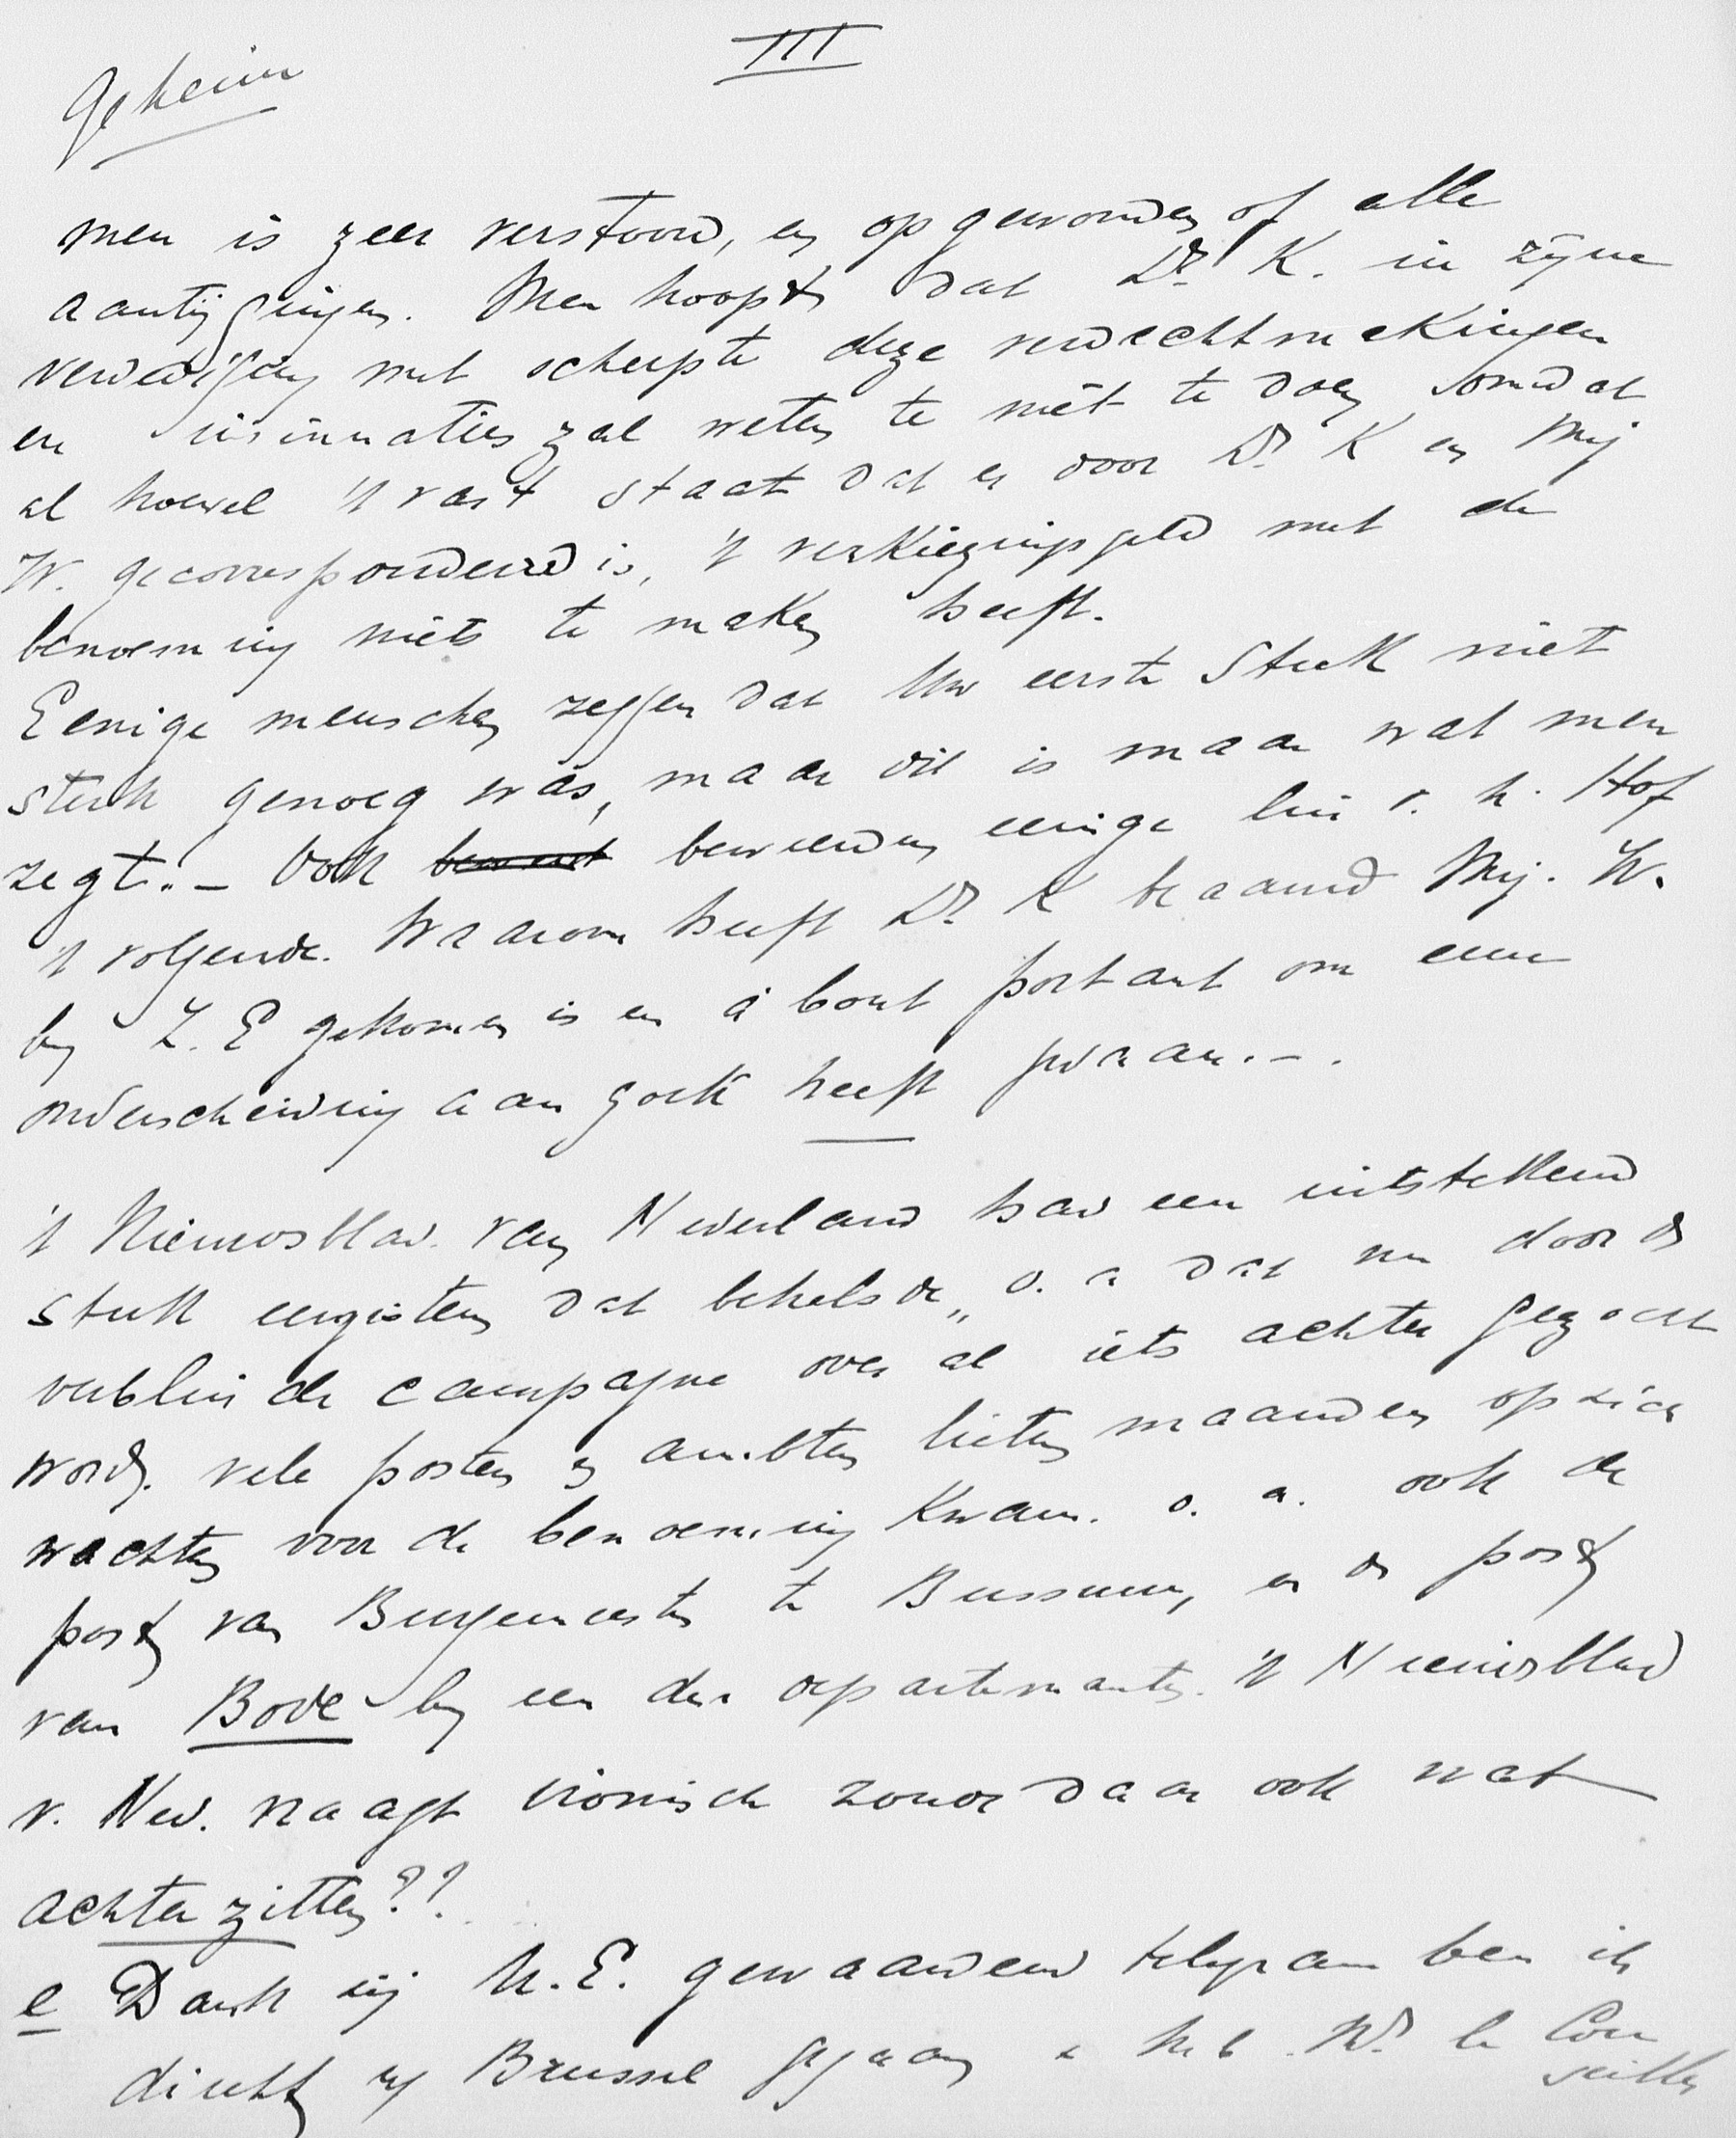 III
Geheim
men is zeer verstoord, en opgewonden of alle
aantijgingen. Men hoopt dat Dr. K. in zijne
verdediging met scherpte deze verdachtmakingen
en insinuaties zal weten te niet te doen, omdat
al hoewel 't vast staat dat er door Dr. K en Mej
W. gecorrespondeerd is, 't verkiezingsgeld met de
benoeming niets te maken heeft.
Eenige menschen zeggen dat Uw eerste stuk niet
sterk genoeg was, maar dit is maar wat men
zegt. – Ook beweerden eenige lui v. h. Hof
't volgende. Waarom heeft Dr. K beaamd Mej. W.
bij Z. E gekomen is en à bout portant om eene
onderscheiding aan zoek heeft gedaan. – .
't Nieuwsblad van Nederland had een uitstekend
stuk eergisteren dat behelsde „ o. a dat nu door de
verblinde campagne over al iets achter gezocht
wordt. vele posten en ambten lieten maanden op zich
wachten voor de benoeming kwam. o. a. ook de
post van Burgemeester te Bussum, en de post
van Bode bij een der departementen. 't Nieuwsblad
v. Ned. vraagt ironisch zoude daar ook wat
achter zitten??
e Dank zij U. E. gewaardeerd telegram ben ik
direkt naar Brussel gegaan en heb Mr. le Con
seiller